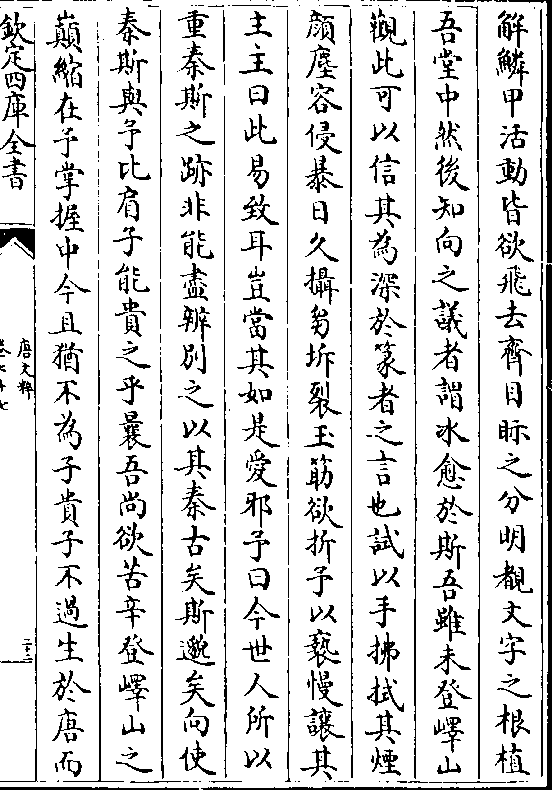 解鱗甲活動皆欲飛去齊目眎之分明覩文字之根植
吾堂中然後知向之議者謂冰愈於斯吾雖未登嶧山
觀此可以信其為深於篆者之言也試以手拂拭其煙
顔塵容侵暴日久攝匆坼裂玉筋欲折予以褻慢讓其
主主曰此易致耳豈當其如是愛邪予曰今世人所以
重秦斯之跡非能盡辨別之以其秦古矣斯邈矣向使
秦斯與予比肩子能貴之乎曩吾尚欲苦辛登嶧山之
巔縮在予掌握中今且猶不為子貴子不過生於唐而
欽定四庫全書
唐文粹
卷七十七